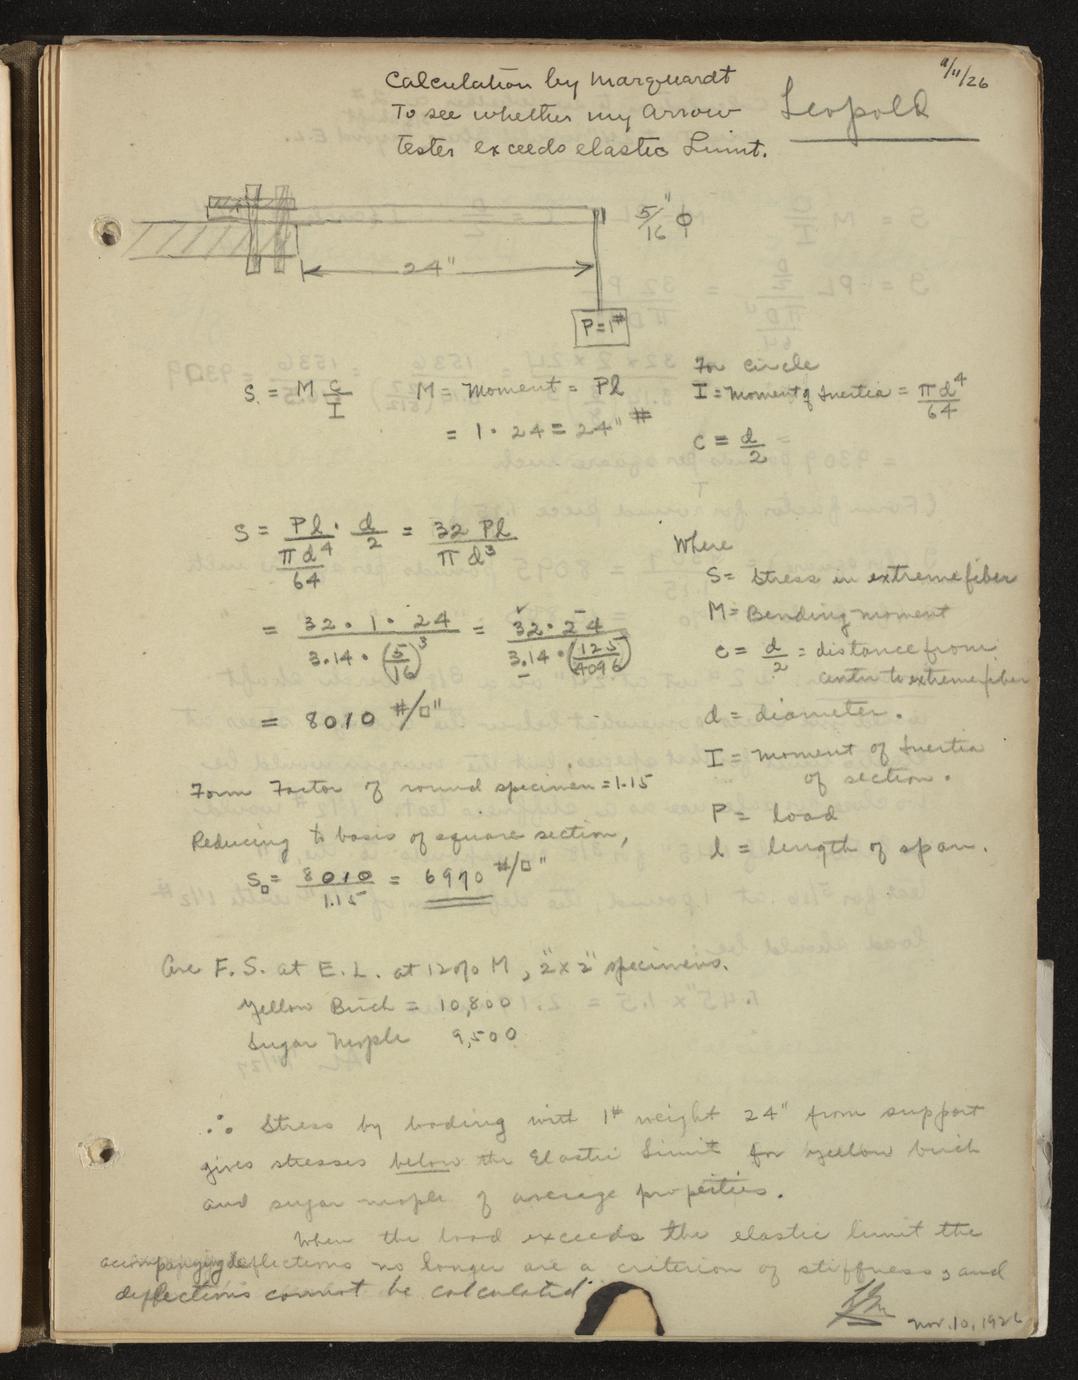 11/11/26
Calculation by Marquardt
To see whether my Arrow
tester exceeds elastic Limit.
Leopold
5/16" ϕ
24"
P=1#
S = M c/I   M = Moment = Pl
= 1 · 24 = 24" #
For circle
I = Moment of Inertia = πd⁴/64
c = d/2
S = Pl/(πd⁴/64) · d/2 = 32 Pl/πd³
= 32 · 1 · 24/(3.14 · (5/16)³) = 32 · 24/(3.14 · (125/4096))
= 8010 #/□"
Where
S = Stress in extreme fiber
M = Bending moment
c = d/2 = distance from
center to extreme fiber
d = diameter.
I = Moment of Inertia
of section.
P = load
l = length of span.
Form Factor of round specimen = 1.15
Reducing to basis of square section,
S□ = 8010/1.15 = 6970 #/□"
Ave F. S. at E. L. at 12% M, 2" x 2" specimens.
Yellow Birch = 10,800
Sugar Maple 9,500
∴ Stress by loading with 1# weight 24" from support
gives stresses below the Elastic Limit for yellow birch
and sugar maple of average properties.
When the load exceeds the elastic limit the
accompanying deflections no longer are a criterion of stiffness, and
deflections cannot be calculated
Nov. 10, 1926